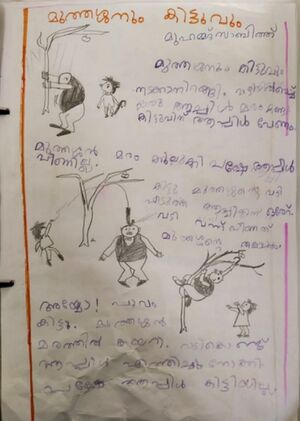 മുത്തശ്ശനും കിട്ടുവും
മുഹമ്മദ് സാബിത്ത്
മുത്തശ്ശനും കിട്ടുവും
നടക്കാനിറങ്ങി.
ഒരു ആപ്പിൾ മരം കണ്ടു
കിട്ടുവിന് ആപ്പിൾ വേണം
മുത്തശ്ശൻ മരം കുലുക്കി പക്ഷേ ആപ്പിൾ
വീണില്ല.
കിട്ടു മുത്തശ്ശന്റെ വടി
എടുത്ത് ആപ്പിളിന്
വടി വന്ന് വീണത്
മുത്തശ്ശന്റെ തലയിൽ
അയ്യോ! പാവം
കിട്ടു. മുത്തശ്ശൻ
മരത്തിൽ കയറി. വടികൊണ്ട്
ആപ്പിൾ എത്തിയും നോക്കി
പക്ഷേ ആപ്പിൾ കിട്ടിയില്ല.